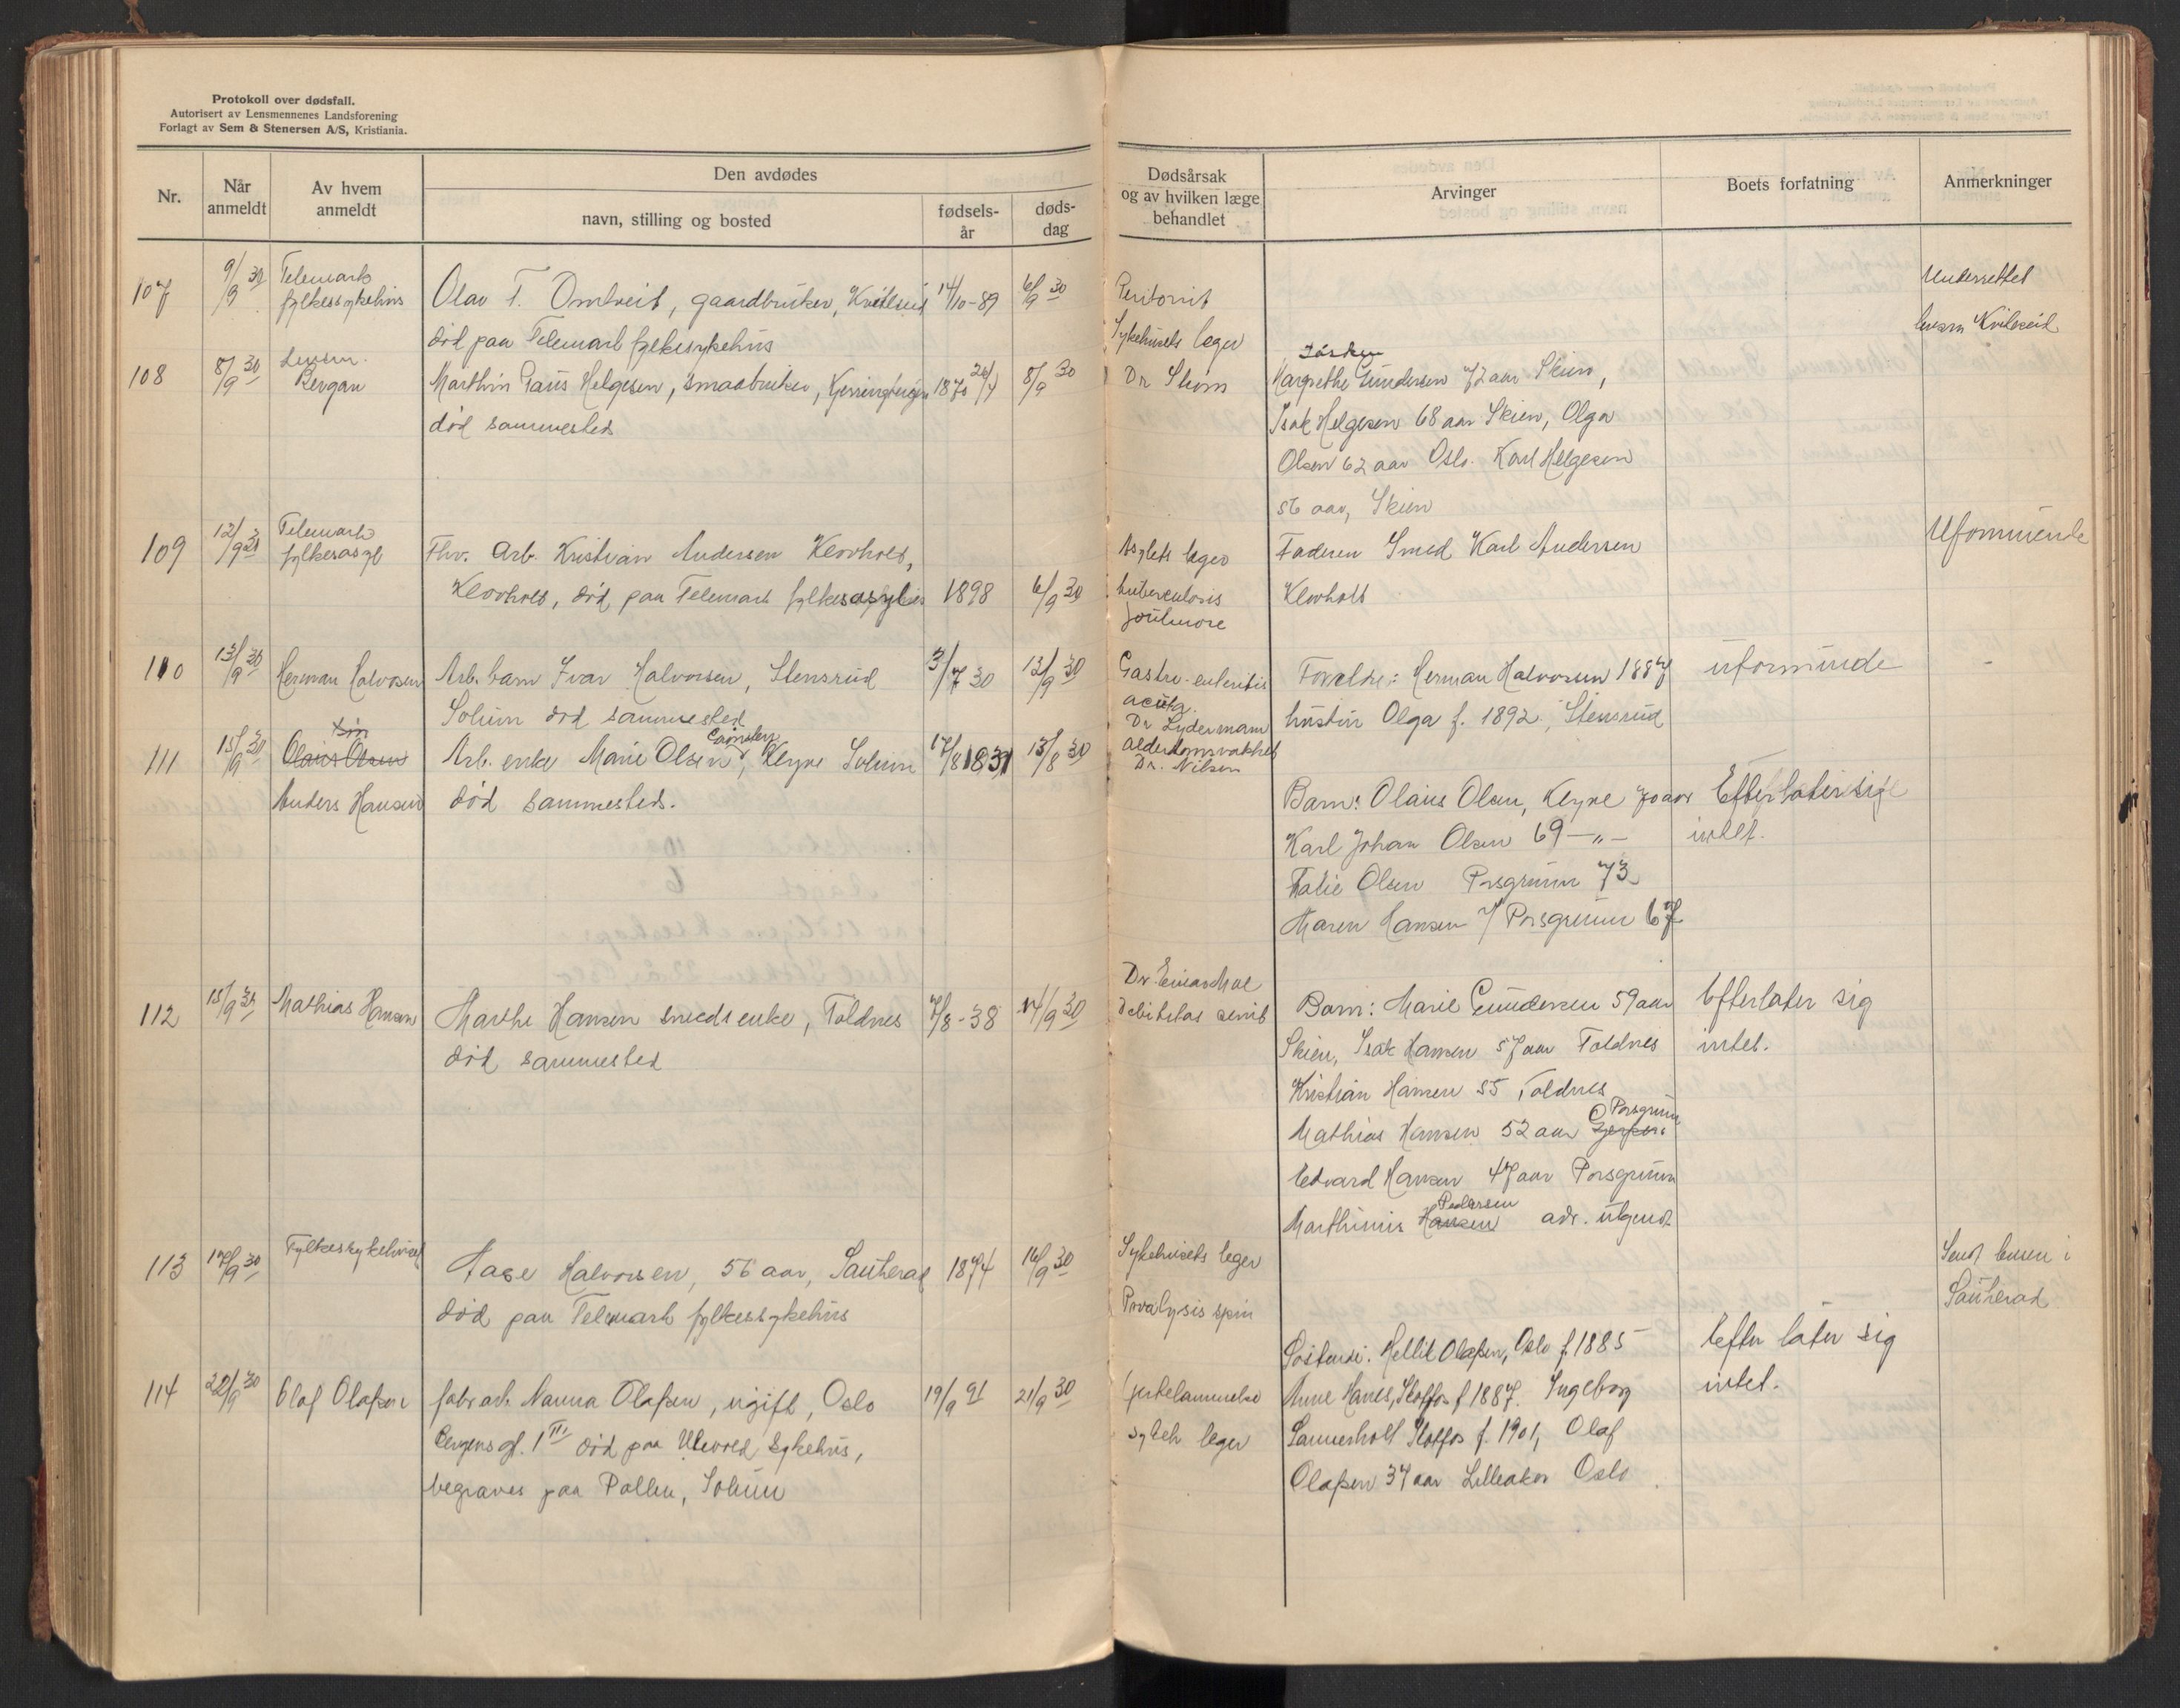 Protokoll over dødsfall.
Autorisert av Lensmennenes Landsforening
Forlagt av Sem & Stenersen A/S, Kristiania.
Nr.
Når anmeldt
Av hvem anmeldt
Den avdødes
navn, stilling og bosted
fødsels-år
døds-dag
Dødsårsak og av hvilken læge behandlet
Arvinger
Boets forfatning
Anmerkninger
107 9/9 30 Telemark fylkessykehus
Olav T. Omtveit, gaardbruker, Kviteseid 14/10-89 6/9 30
død paa Telemark fylkesykehus
Peritonit
Sykehusets læger
Underrettet
lensm Kviteseid
108 8/9 30 Lensm. Bergan
Marthin Paus Helgesen, smaabruker, 1870 26/4 8/9 30
død sammesteds
Dr Strøm
Søsken
Margrethe Gundersen 72 aar Skien,
Isak Helgesen 68 aar Skien, Olga
Olsen 62 aar Oslo. Karl Helgesen
56 aar, Skien
109 12/9 30 Telemark fylkesasyl
Fhv. Arb. Kristian Andersen Klovholt,
Klovholt, død paa Telemark fylkesasyl 1898 6/9 30
Asylets læger
tuberculosis
pulmore
Faderen Smed Karl Andersen
Klovholt
Uformuende
110 13/9 30 Herman Halvorsen
Arb. barn Ivar Halvorsen, Stensrud 3/7 30 12/9 30
Solum død sammested
Gastro-enteritis
acuta.
Dr Lydermann
Forældre: Herman Halvorsen 1887
hustru Olga f. 1892, Stensrud
uformuende
-
111 15/9 30 søn
Olaus Olsen
Anders Hansen
Arb. enke Marie Olsen, Klyve Solum 17/8 1831 13/8 30
død sammesteds.
Alderdomsvakhet
Dr. Nilsen
Barn: Olaus Olsen, Klyve 70 aar
Karl Johan Olsen 69 -"-
Talie Olsen Porsgrunn 73
Maren Hansen Porsgrunn 67
Efterlater sig
intet.
112 15/9 30 Mathias Hansen
Marthe Hansen smeds enke, Toldnes 7/8-38 14/9 30
død sammested
Dr Einar Moe
Debilitas senil
Barn: Marie Gundersen 59 aar
Skien, Isak Hansen 57 aar Toldnes
Kristian Hansen 55 Toldnes
Porsgrunn
Mathias Hansen 52 aar Gjerpen
Edvard Hansen 47 aar Porsgrunn
Pedersen
Marthinius Hansen adr. ukjendt
Efterlater sig
intet.
113 17/9 30 Fylkessykehuset
Aase Halvorsen, 56 aar, Sauherad 1874 16/9 30
død paa Telemark fylkessykehus
Sykehusets læger
Paralysis spin
Sendt lensm i
Sauherad
114 22/9 30 Olaf Olafsen
fabr arb. Nanna Olafsen, ugift, Oslo 19/9 91 21/9 30
Bergensgt. 1 III død paa Ulevold sykehus,
begraves paa Pollen, Solum
hjertelammelse
sykeh læger
Søskende: Hellik Olafsen, Oslo f. 1885
Anne Hanes, Klosfos f 1887. Ingeborg
Sannerholt Klosfos f. 1901, Olaf
Olafsen 37 aar Lilleaker Oslo
Efterlater sig
intet.